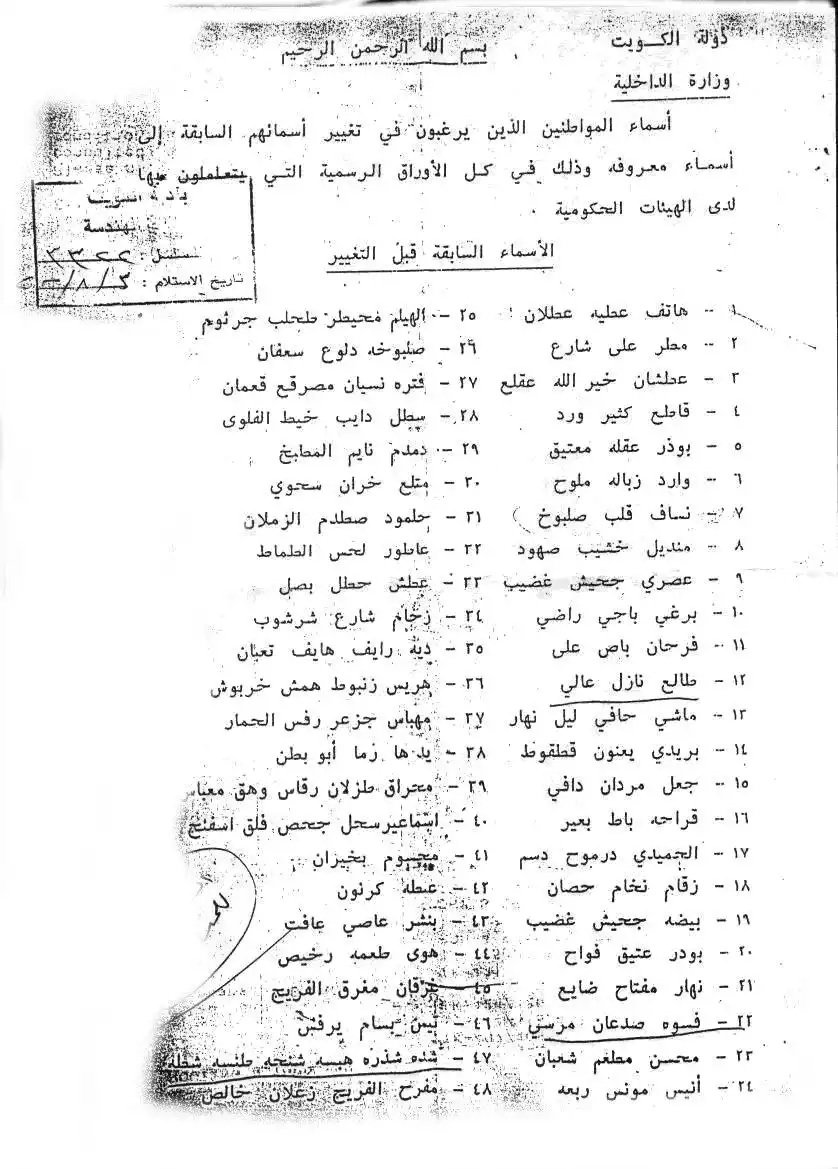 دولة الكويت
بسم الله الرحمن الرحيم
وزارة الداخلية
أسماء المواطنين الذين يرغبون في تغيير أسمائهم السابقة إلى
أسماء معروفه وذلك في كل الأوراق الرسمية التي يتعملون بها
لدى الهيئات الحكومية .
الهندسة
مسلسل : ٣٣٢٢
تاريخ الاستلام : ٣/٨/
الأسماء السابقة قبل التغيير
١ - هاتف عطيه عطلان
٢ - مطر على شارع
٣ - عطشان خير الله عقلع
٤ - قاطع كثير ورد
٥ - بوذر عقله معتيق
٦ - وارد زباله ملوح
٧ - نساف قلب صلبوخ
٨ - منديل خشيب صهود
٩ - عصري جحيش غضيب
١٠ - برغي باجي راضي
١١ - فرحان باص على
١٢ - طالع نازل عالي
١٣ - ماشي حافي ليل نهار
١٤ - بريدي يعنون قطقوط
١٥ - جعل مردان دافي
١٦ - قراحه باط بعير
١٧ - الحميدي درموح دسم
١٨ - زقام نخام حصان
١٩ - بيضه جحيش غضيب
٢٠ - بودر عتيق فواح
٢١ - نهار مفتاح ضايع
٢٢ - فسوه صدعان مرسي
٢٣ - محسن مطعم شعبان
٢٤ - أنيس مونس ربعه
٢٥ - الهيلم مخيطر طحلب جرثوم
٢٦ - صلبوخه دلوع سعفان
٢٧ - فتره نسيان مصرقع قعمان
٢٨ - سطل دايب خيط الفلوى
٢٩ - دمدم نايم المطبخ
٣٠ - متلع خران سحوي
٣١ - جلمود صطدم الزملان
٣٢ - عاطور لحس الطماط
٣٣ - عطش حطل بصل
٣٤ - زخام شارع شرشوب
٣٥ - ديه رايف هايف تعبان
٣٦ - هريس زنبوط همش خربوش
٣٧ - مهباس جزعر رفس الحمار
٣٨ - يدها رما أبو بطن
٣٩ - محراق طزلان رقاس وهق
٤٠ - اسماعيرسحل جحص فلق اسفنج
٤١ - محسوم بخيزان
٤٢ - عبطه كرنون
٤٣ - بنشر عاصي عافت
٤٤ - هوى طعمه رخيص
٤٥ - غرقان مغرق الفريج
٤٦ - تيس بسام يرفس
٤٧ - شده شذره هبسه شنحه طنسه شطه
٤٨ - مفرح الفريج زعلان خالص